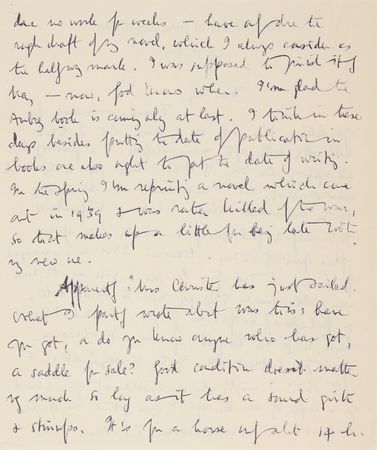 done no work for weeks – have only done the
rough draft of my novel, which I always consider as
the halfway mark. I was supposed to finish it by
May – now, God knows when. I'm glad the
Aubrey book is coming along at last. I think in these
days besides putting to date of publication in
books one also ought to put the date of writing.
In the spring I'm reprinting a novel which came
out in 1939 & was rather killed by the war,
so that makes up a little for being late with
my new one.
Apparently Mrs has just sailed.
What I partly wrote about was this: have
you got, or do you know anyone who has got,
a saddle for sale? Good condition doesn't matter
very much so long as it has a sound girth
& stirrups. It's for a horse of abt 14 h.